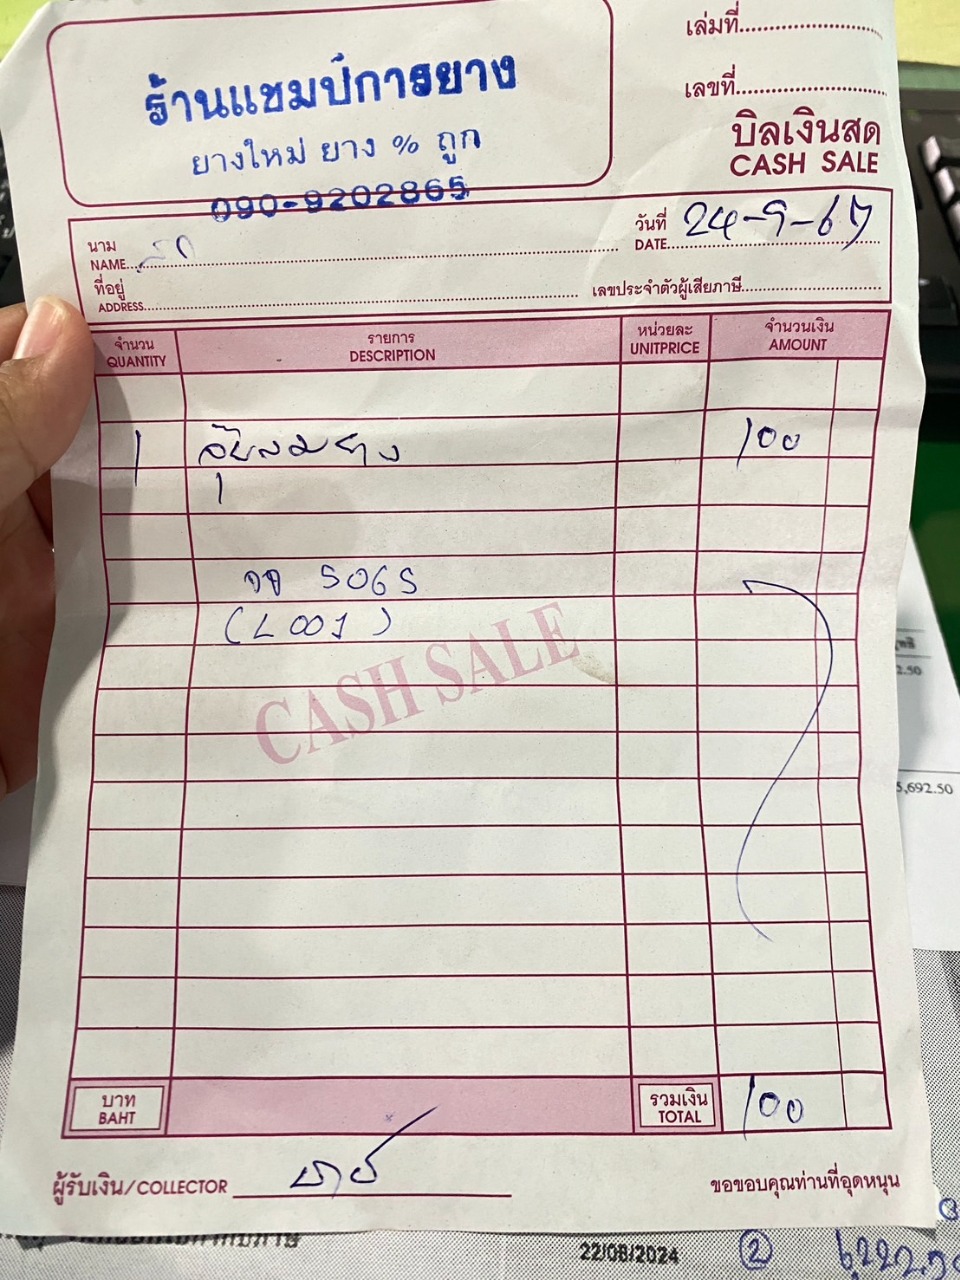 เล่มที่
เลขที่
ร้านแชมป์การยาง
ยางใหม่ ยาง % ถูก
090-9202865
บิลเงินสด
CASH SALE
นาม
NAME
วันที่ 24-9-67
DATE
ที่อยู่
ADDRESS
เลขประจำตัวผู้เสียภาษี
จำนวน รายการ หน่วยละ จำนวนเงิน
QUANTITY DESCRIPTION UNITPRICE AMOUNT
1 จุ๊บลมยาง 100
5065
(L001)
CASH SALE
บาท รวมเงิน 100
BAHT TOTAL
ผู้รับเงิน/COLLECTOR
ขอขอบคุณท่านที่อุดหนุน
2.50
5,692.50
22/08/2024
2